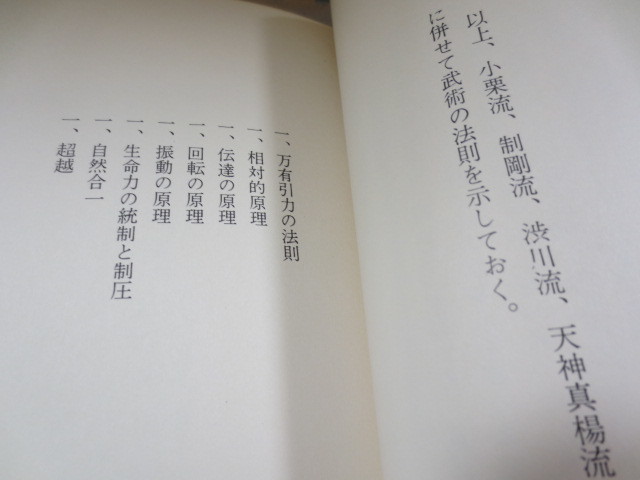 以上、小栗流、制剛流、渋川流、天神真楊流
に併せて武術の法則を示しておく。
一、万有引力の法則
一、相対的原理
一、伝達の原理
一、回転の原理
一、振動の原理
一、生命力の統制と制圧
一、自然合一
一、超越